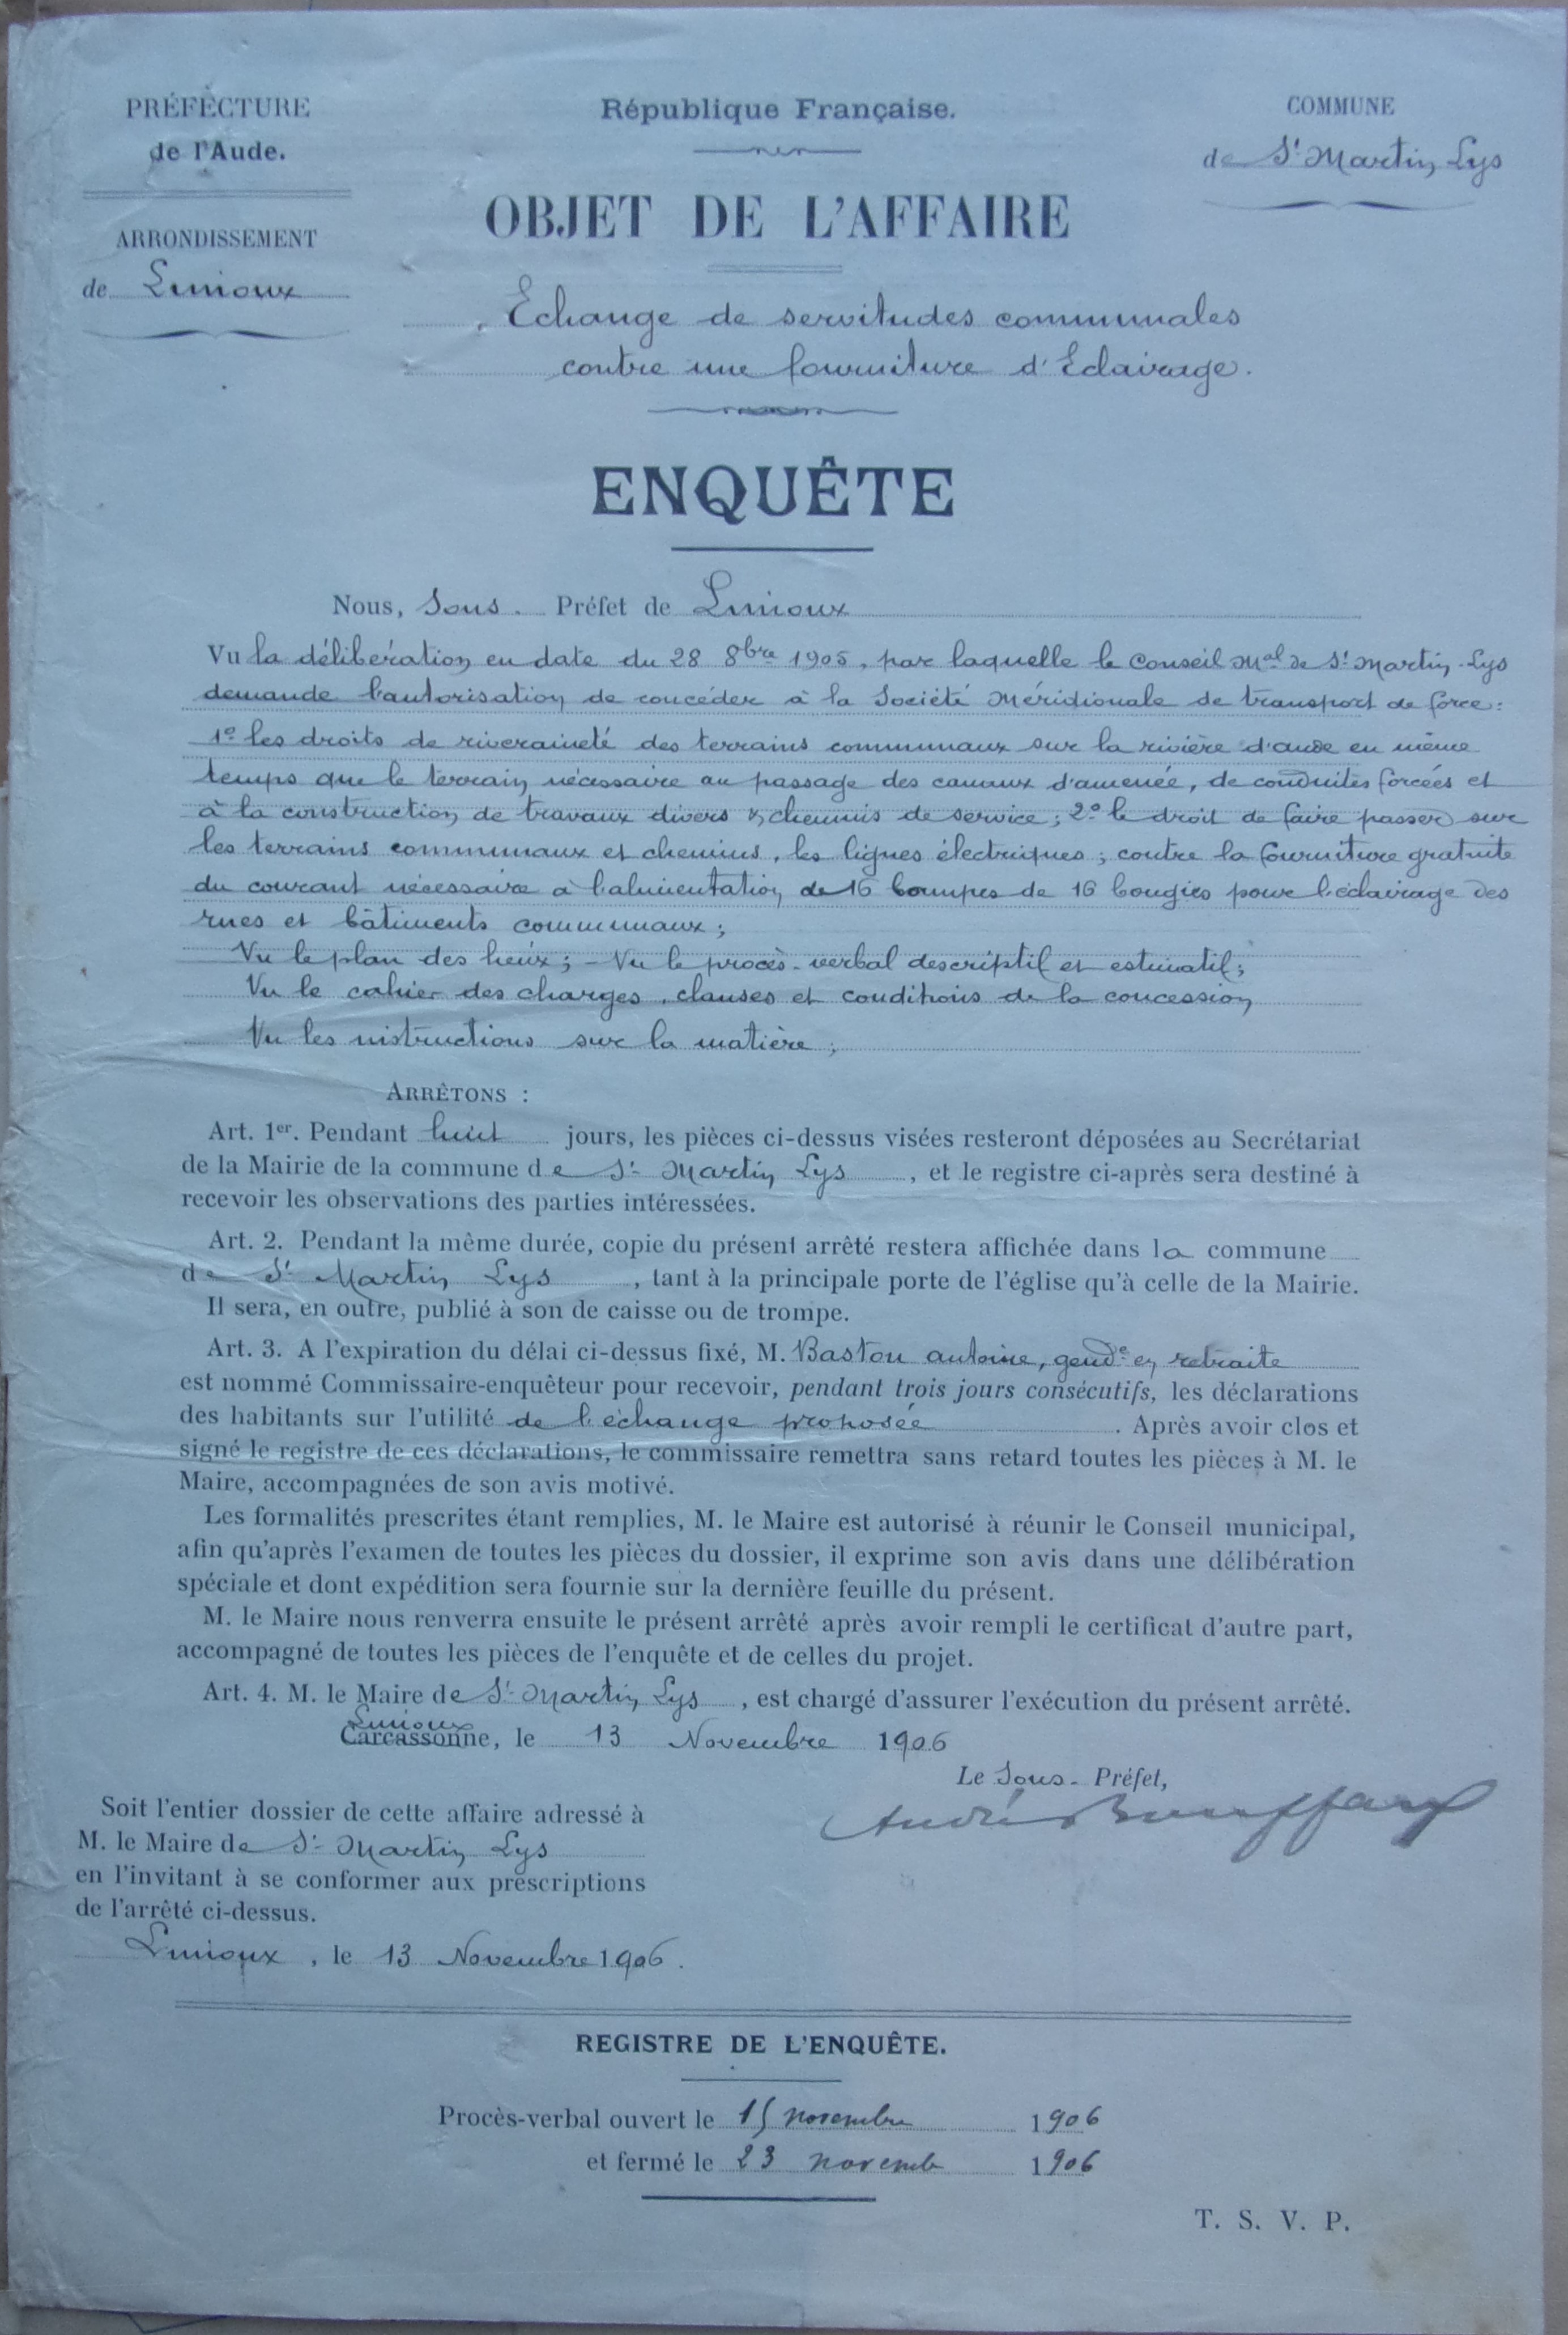 PRÉFECTURE
de l'Aude.
ARRONDISSEMENT
de Limoux
République Française.
OBJET DE L'AFFAIRE
Echange de servitudes communales
contre une fourniture d'Eclairage.
COMMUNE
de St Martin Lys
ENQUÊTE
Nous, Sous-Préfet de Limoux
Vu la délibération en date du 28 8bre 1905, par laquelle le Conseil Mal de St Martin-Lys
demande l'autorisation de concéder à la Société Méridionale de transport de force:
1º les droits de riveraineté des terrains communaux sur la rivière d'aude en même
temps que le terrain nécessaire au passage des canaux d'amenée, de conduites forcées et
à la construction de travaux divers & chemins de service; 2º le droit de faire passer sur
les terrains communaux et chemins, les lignes électriques; contre la fourniture gratuite
du courant nécessaire à l'alimentation de 16 lampes de 16 bougies pour l'éclairage des
rues et bâtiments communaux;
Vu le plan des lieux; - Vu le procès-verbal descriptif et estimatif;
Vu le cahier des charges, clauses et conditions de la concession
Vu les instructions sur la matière;
ARRÊTONS :
Art. 1er. Pendant huit jours, les pièces ci-dessus visées resteront déposées au Secrétariat
de la Mairie de la commune de St Martin Lys, et le registre ci-après sera destiné à
recevoir les observations des parties intéressées.
Art. 2. Pendant la même durée, copie du présent arrêté restera affichée dans la commune
de St Martin Lys, tant à la principale porte de l'église qu'à celle de la Mairie.
Il sera, en outre, publié à son de caisse ou de trompe.
Art. 3. A l'expiration du délai ci-dessus fixé, M. Baston antoine, gende en retraite
est nommé Commissaire-enquêteur pour recevoir, pendant trois jours consécutifs, les déclarations
des habitants sur l'utilité de l'échange proposée. Après avoir clos et
signé le registre de ces déclarations, le commissaire remettra sans retard toutes les pièces à M. le
Maire, accompagnées de son avis motivé.
Les formalités prescrites étant remplies, M. le Maire est autorisé à réunir le Conseil municipal,
afin qu'après l'examen de toutes les pièces du dossier, il exprime son avis dans une délibération
spéciale et dont expédition sera fournie sur la dernière feuille du présent.
M. le Maire nous renverra ensuite le présent arrêté après avoir rempli le certificat d'autre part,
accompagné de toutes les pièces de l'enquête et de celles du projet.
Art. 4. M. le Maire de St Martin Lys, est chargé d'assurer l'exécution du présent arrêté.
Limoux
Carcassonne, le 13 Novembre 1906
Le Sous-Préfet,
Soit l'entier dossier de cette affaire adressé à
M. le Maire de St Martin Lys
en l'invitant à se conformer aux prescriptions
de l'arrêté ci-dessus.
Limoux, le 13 Novembre 1906.
REGISTRE DE L'ENQUÊTE.
Procès-verbal ouvert le 15 novembre 1906
et fermé le 23 novemb 1906
T. S. V. P.